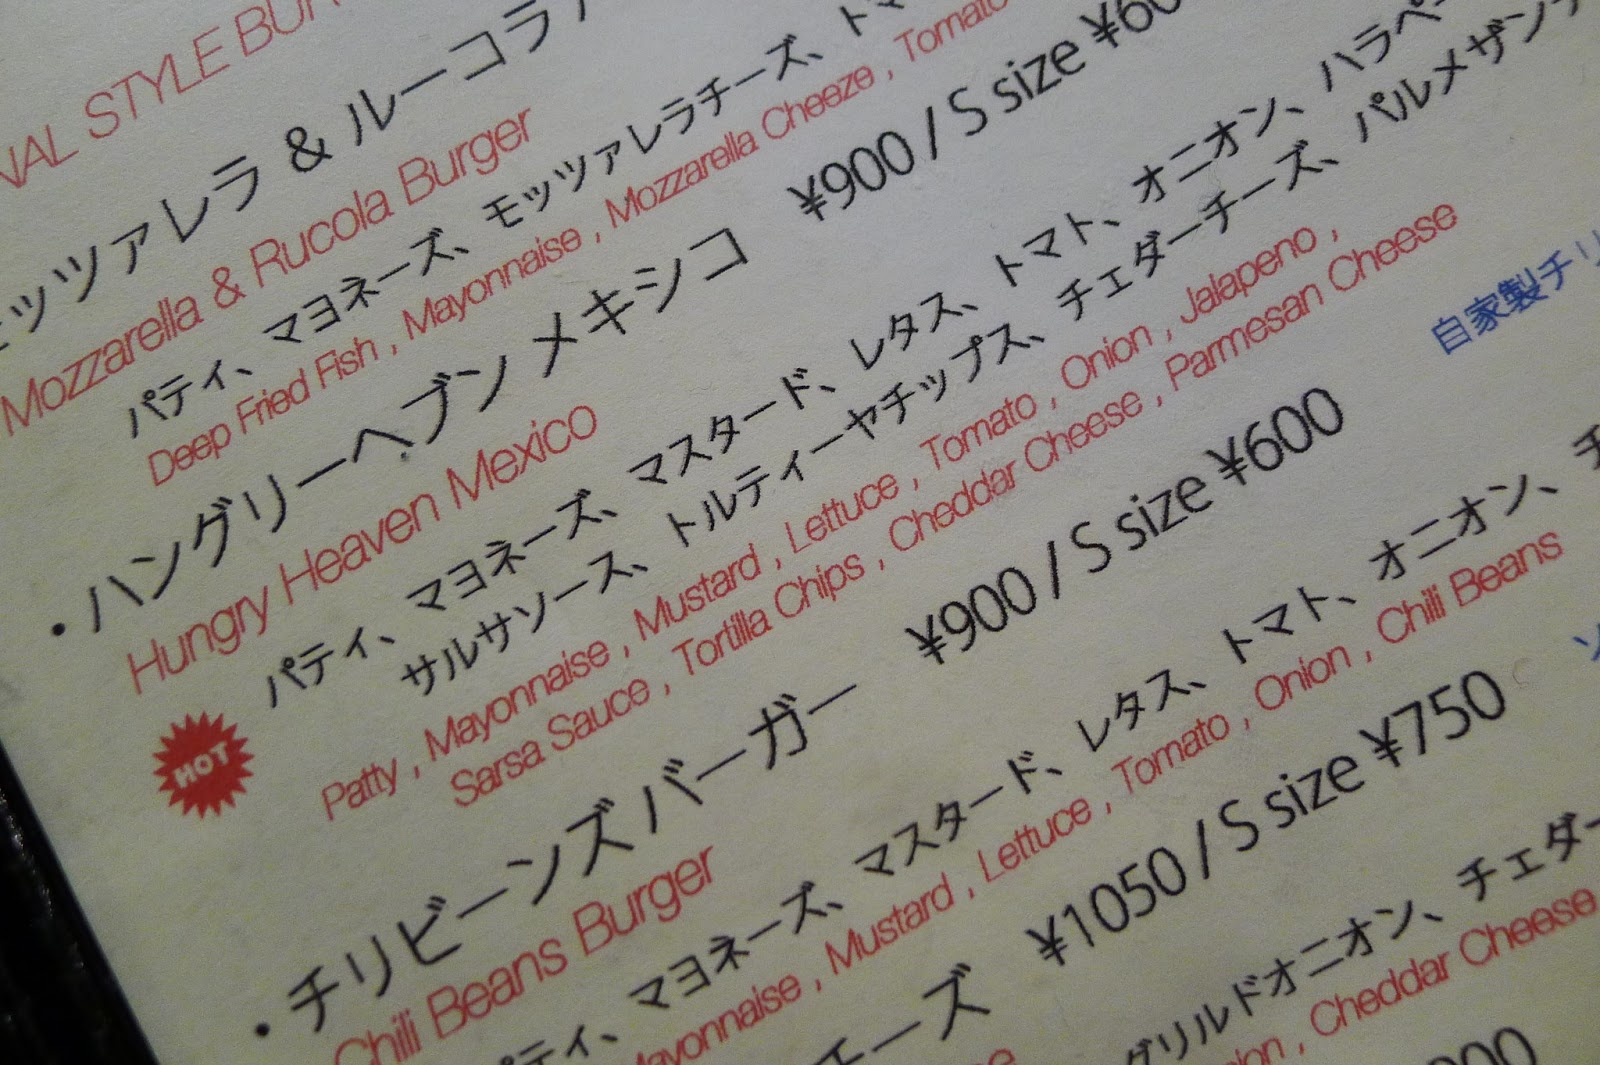 NAL STYLE BUR
モッツァレラ & ルーコラ
Mozzarella & Rucola Burger
パティ、マヨネーズ、モッツァレラチーズ、トマ
Deep Fried Fish , Mayonnaise , Mozzarella Cheeze , Tomato
・ハングリーヘブン メキシコ ¥900 / S size ¥60
Hungry Heaven Mexico
パティ、マヨネーズ、マスタード、レタス、トマト、オニオン、ハラペー
サルサソース、トルティーヤチップス、チェダーチーズ、パルメザンチ
HOT
Patty , Mayonnaise , Mustard , Lettuce , Tomato , Onion , Jalapeno ,
Sarsa Sauce , Tortilla Chips , Cheddar Cheese , Parmesan Cheese
・チリビーンズバーガー ¥900 / S size ¥600 自家製チリ
Chili Beans Burger
パティ、マヨネーズ、マスタード、レタス、トマト、オニオン、チ
Mayonnaise , Mustard , Lettuce , Tomato , Onion , Chili Beans
チーズ ¥1050 / S size ¥750 ソ
グリルドオニオン、チェダー
nion , Cheddar Cheese